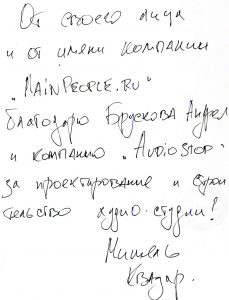 От своего лица
и от имени компании
"MainPeople.ru"
благодарю Брускова Андрея
и компанию "AudioStop"
за проектирование и строи
тельство аудио-студии!
Мишель
Квазар.